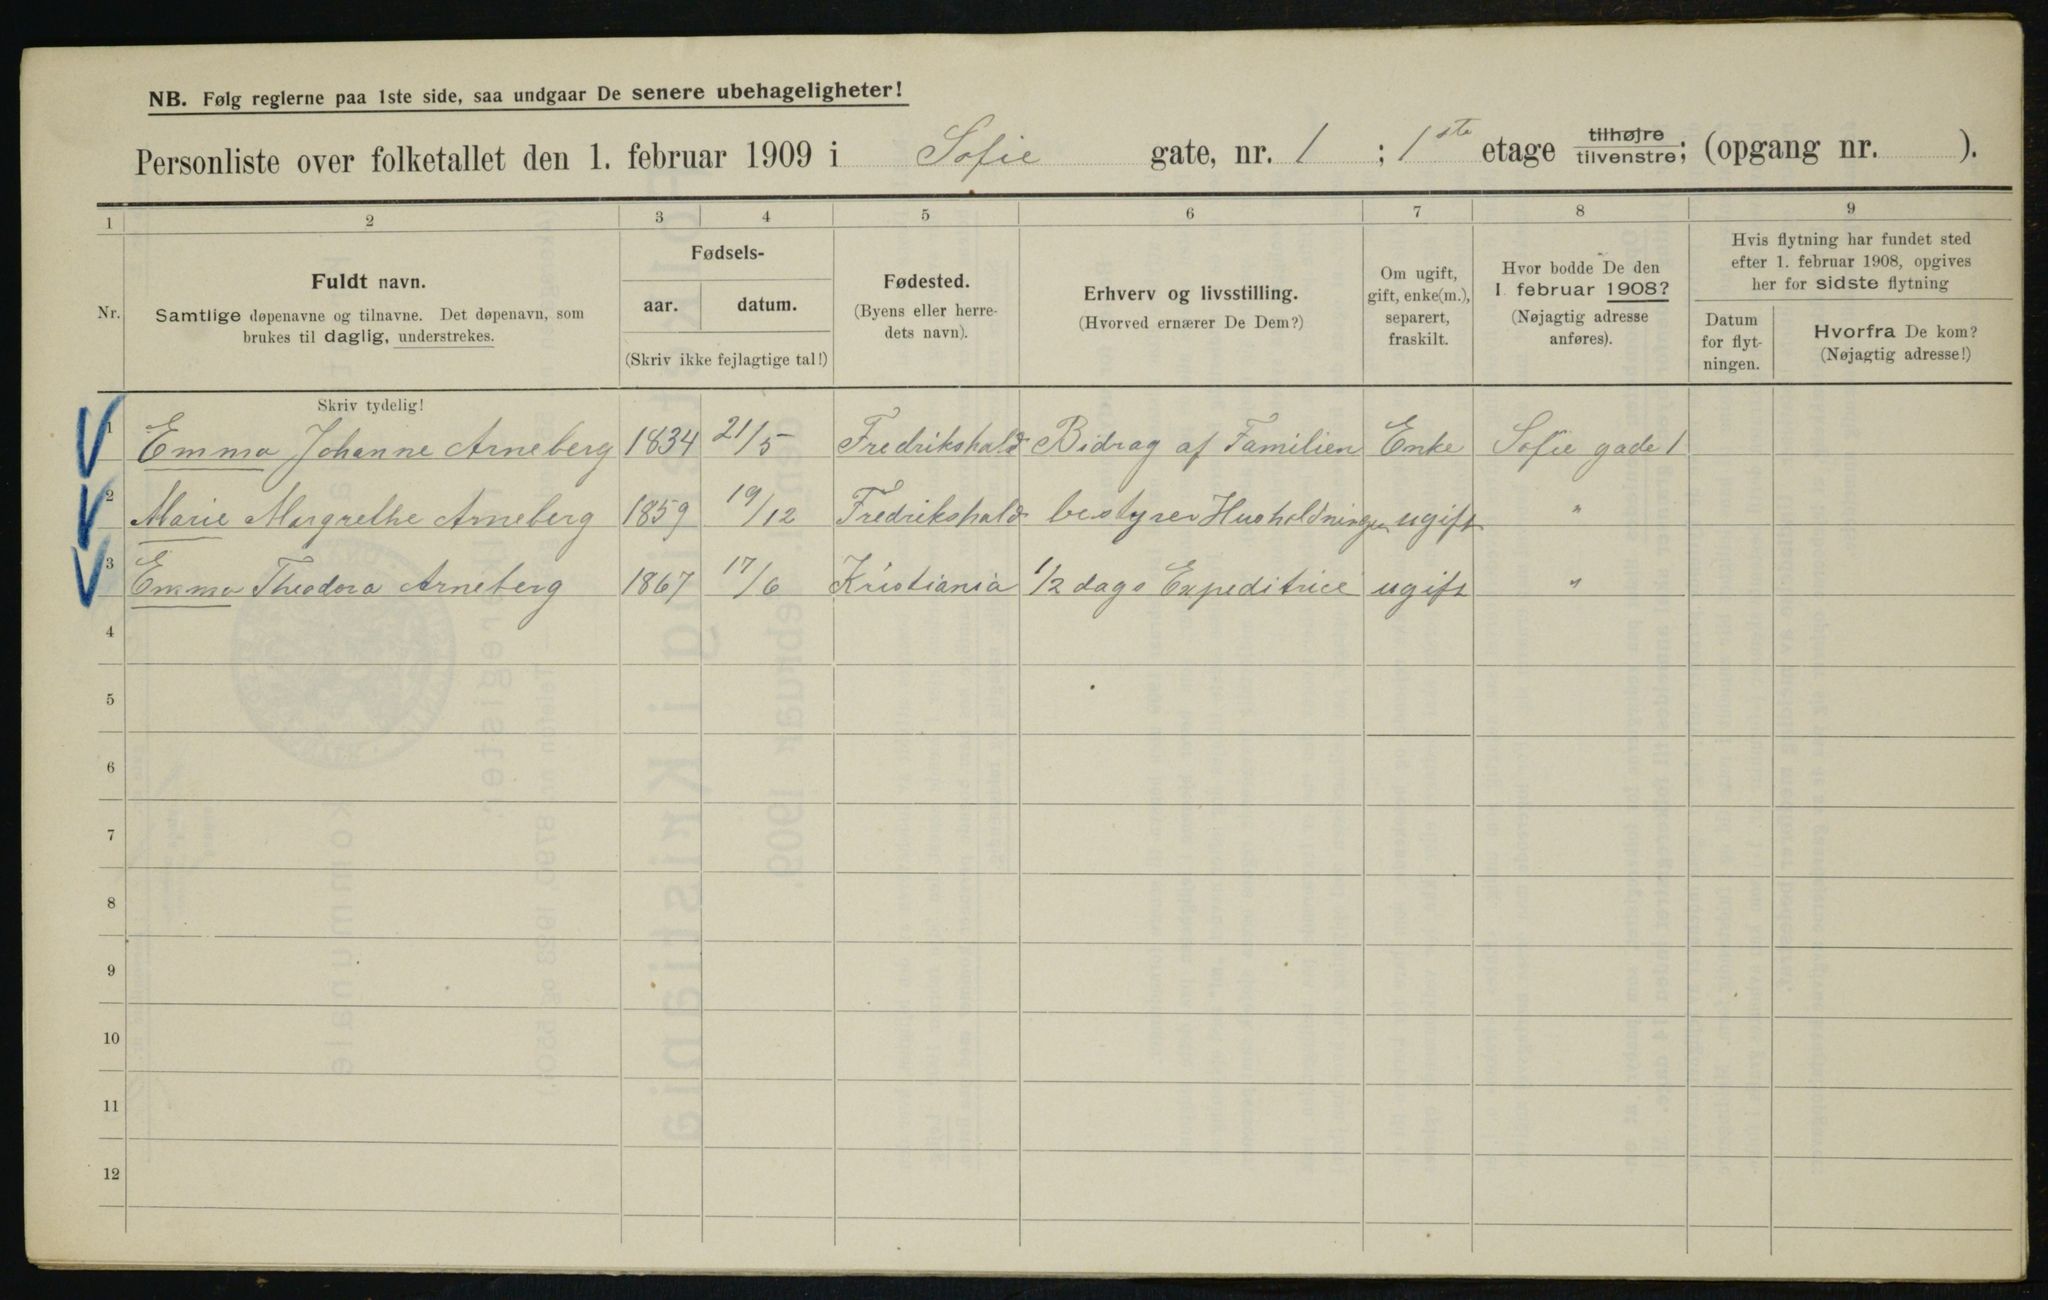 NB. Følg reglerne paa 1ste side, saa undgaar De senere ubehageligheter!
Personliste over folketallet den 1. februar 1909 i Sofie gate, nr. 1 ; 1ste etage tilhøjre tilvenstre; (opgang nr. ).
1 2 3 4 5 6 7 8 9
Nr.
Fuldt navn.
Samtlige døpenavne og tilnavne. Det døpenavn, som
brukes til daglig, understrekes.
Skriv tydelig!
Fødsels-
aar. datum.
(Skriv ikke fejlagtige tal!)
Fødested.
(Byens eller herre-
dets navn).
Erhverv og livsstilling.
(Hvorved ernærer De Dem?)
Om ugift,
gift, enke(m.),
separert,
fraskilt.
Hvor bodde De den
1. februar 1908?
(Nøjagtig adresse
anføres).
Hvis flytning har fundet sted
efter 1. februar 1908, opgives
her for sidste flytning
Datum
for flyt-
ningen.
Hvorfra De kom?
(Nøjagtig adresse!)
1 Emma Johanne Arneberg 1834 21/5 Fredrikshald Bidrag af Familien Enke Sofie gade 1
2 Marie Margrethe Arneberg 1859 19/12 Fredrikshald bestyrer Husholdningen ugift "
3 Emma Theodora Arneberg 1867 17/6 Kristiania 1/2 dags Expeditrice ugift "
4
5
6
7
8
9
10
11
12